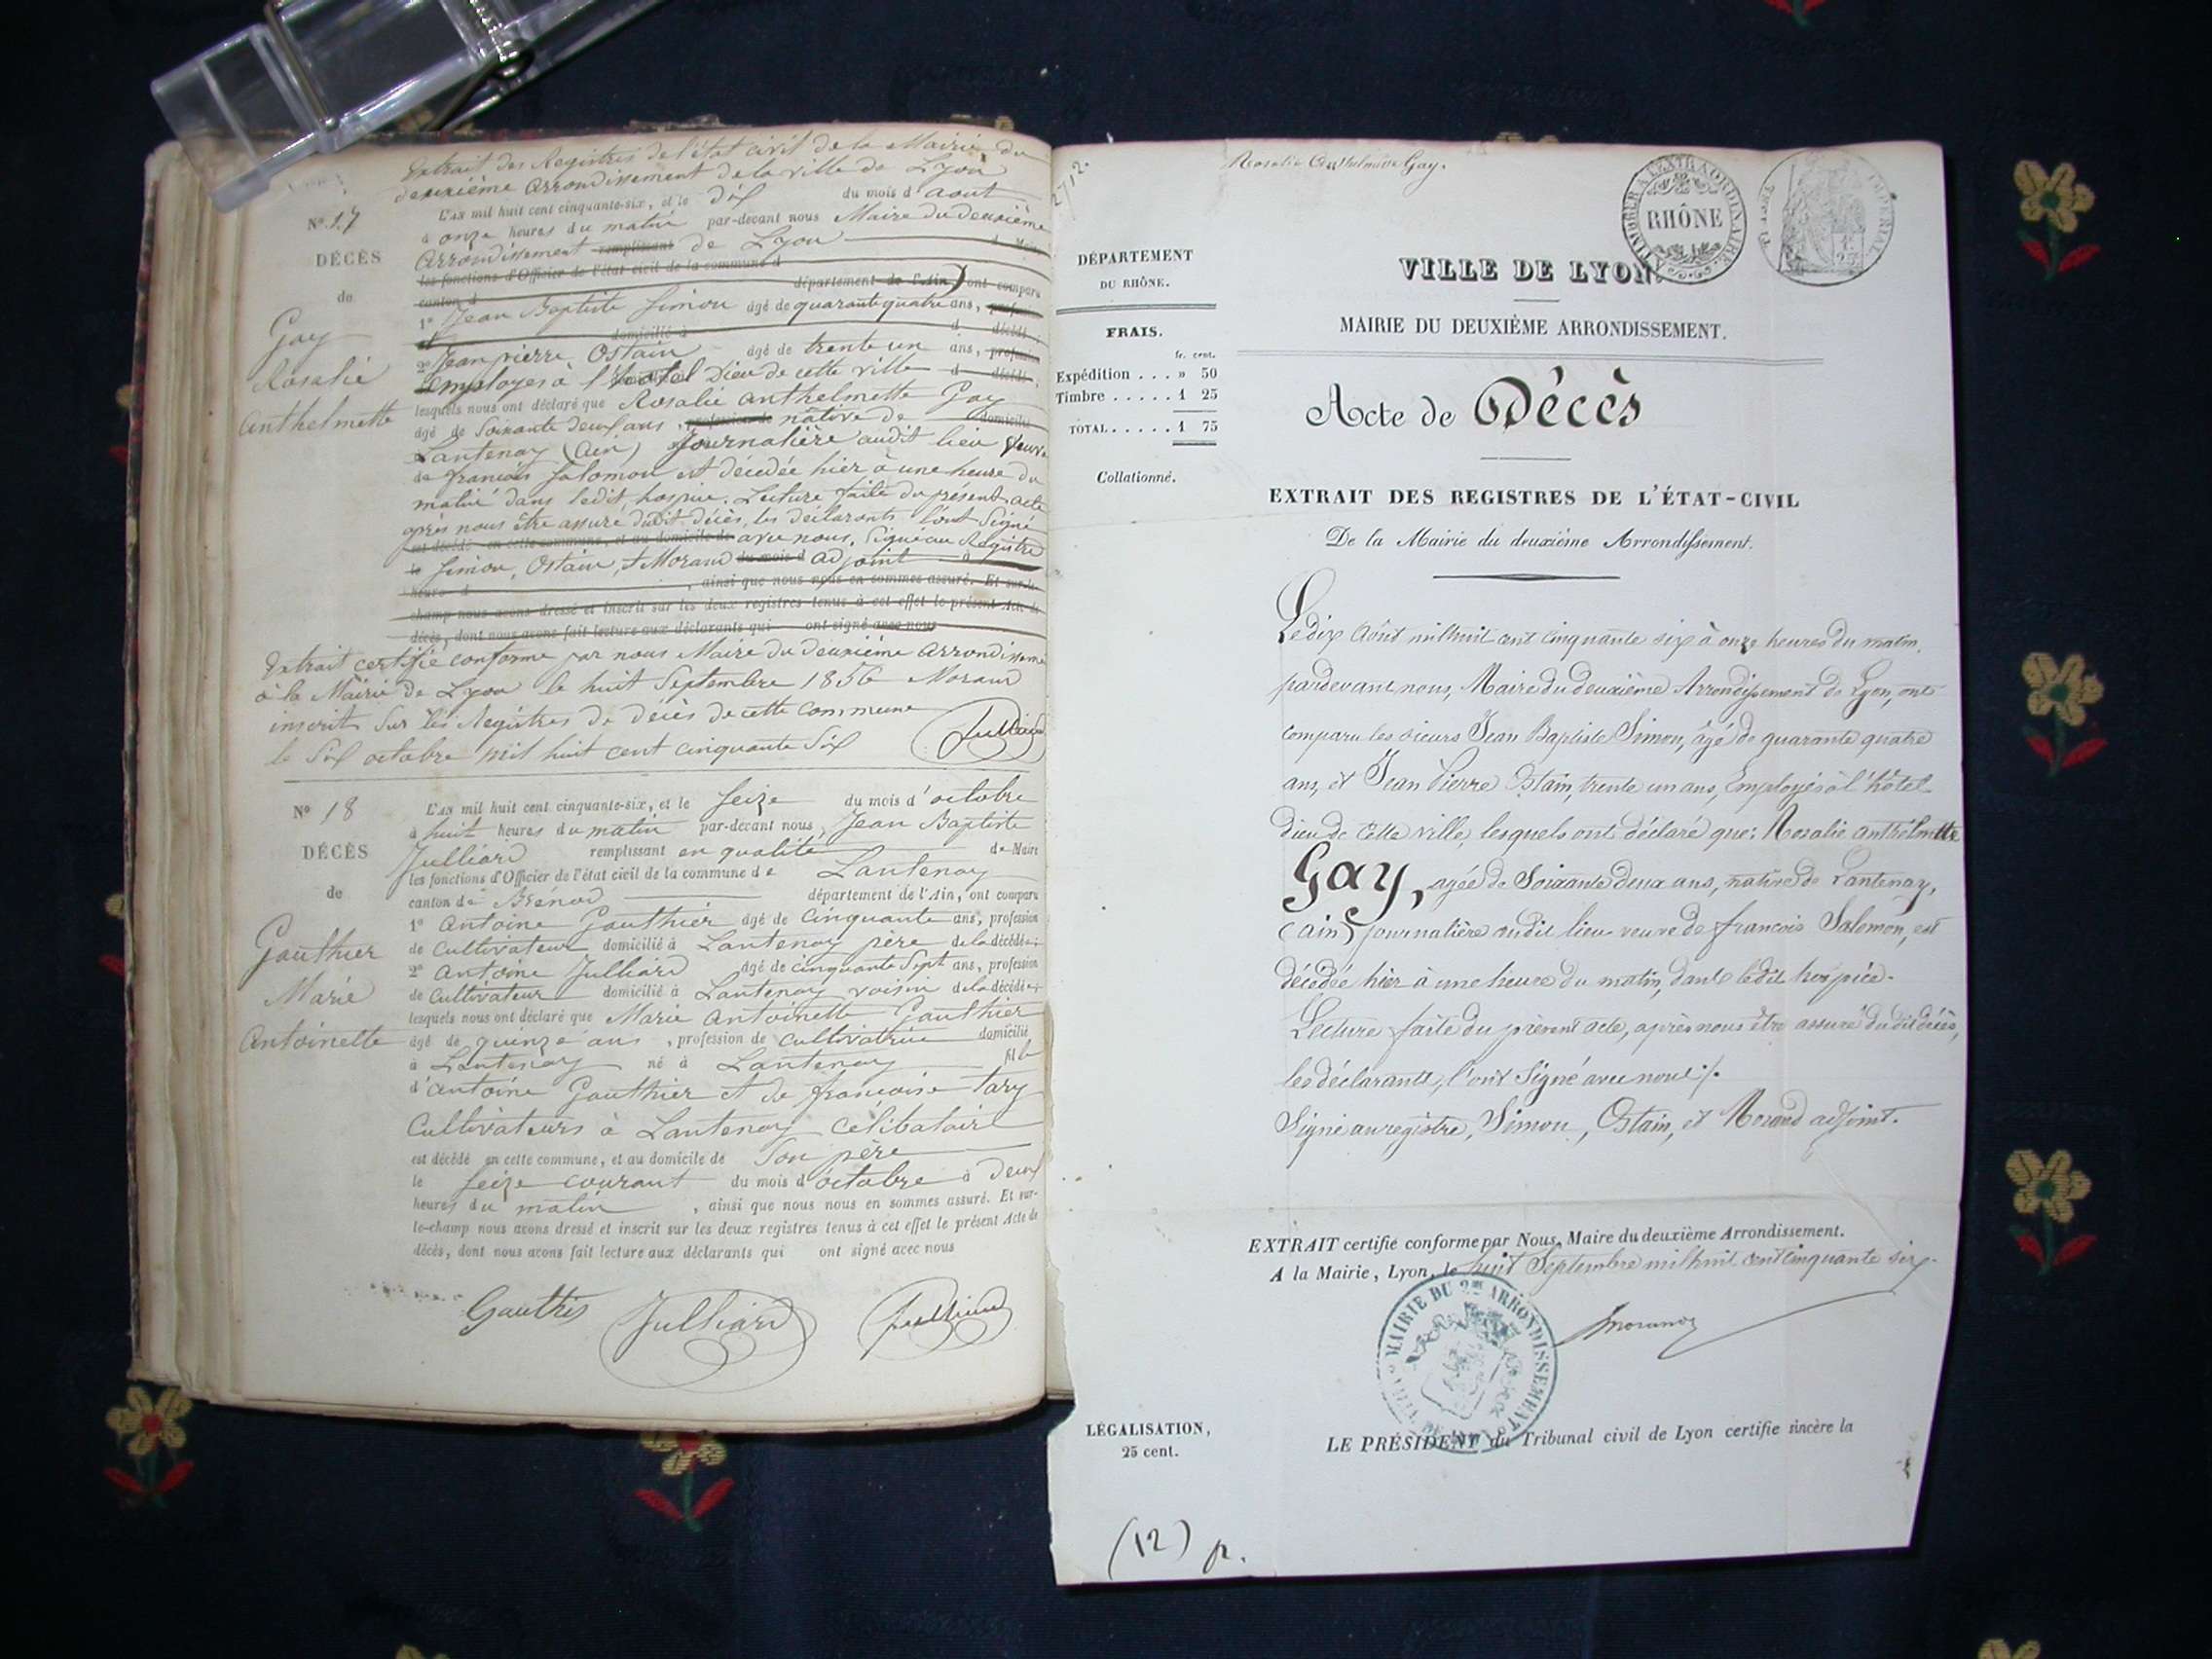 Extrait des Registres de l'état civil de la Mairie du
deuxième arrondissement de la ville de Lyon
Nº 17
L'AN mil huit cent cinquante-six, et le dix du mois d'aout
à onze heures du matin par-devant nous Maire du deuxième
DÉCÈS
arrondissement remplissant de Lyon
les fonctions d'Officier de l'état civil de la commune d
de
canton d département de l'Ain, ont comparu
Gay
Rosalie
anthelmette
1º Jean Baptiste Simon âgé de quarante quatre ans,
domicilié à d décédé
2º Jean pierre Ostain âgé de trente un ans, profession
Employés à l'hotel Dieu de cette ville d décédé,
lesquels nous ont déclaré que Rosalie anthelmette Gay
âgé de Soixante deux ans, profession de native de domicilié
Lantenay (Ain) Journalière audit lieu Veuve
de françois Salomon est décédée hier à une heure du
matin dans ledit hospice. Lecture faite du présent acte
après nous être assuré dudit décès, les déclarants l'ont Signé
est décédé en cette commune, et au domicile de avec nous, Signé au Registre
le Simon, Ostain, et Morand du mois d adjoint à
heure d , ainsi que nous nous en sommes assuré. Et sur-le-
champ nous avons dressé et inscrit sur les deux registres tenus à cet effet le présent Acte de
décès, dont nous avons fait lecture aux déclarants qui ont signé avec nous
Extrait certifié conforme par nous Maire du deuxième arrondissement
à la Mairie de Lyon le huit Septembre 1856 Morand
inscrit Sur les Registres de décès de cette commune
le Six octobre mil huit cent cinquante Six
Julliard
Nº 18
DÉCÈS
de
Gauthier
Marie
Antoinette
L'AN mil huit cent cinquante-six, et le Seize du mois d'octobre
à huit heures du matin par-devant nous, Jean Baptiste
Julliard remplissant en qualité de Maire
les fonctions d'Officier de l'état civil de la commune de Lantenay
canton de Brénod département de l'Ain, ont comparu
1º Antoine Gauthier âgé de cinquante ans, profession
de cultivateur domicilié à Lantenay père de la décédée;
2º Antoine Julliard âgé de cinquante Sept ans, profession
de cultivateur domicilié à Lantenay voisin de la décédée;
lesquels nous ont déclaré que Marie Antoinette Gauthier
âgé de quinze ans, profession de cultivatrice domicilié
à Lantenay né à Lantenay fille
d'Antoine Gauthier et de francoise Tary
Cultivateurs à Lantenay célibataire
est décédé en cette commune, et au domicile de Son père
le Seize courant du mois d'octobre à deux
heures du matin, ainsi que nous nous en sommes assuré. Et sur-
le-champ nous avons dressé et inscrit sur les deux registres tenus à cet effet le présent Acte de
décès, dont nous avons fait lecture aux déclarants qui ont signé avec nous
Gauthier Julliard Julliard
2712.
Rosalie Anthelmette Gay.
TIMBRE A L'EXTRAORDINAIRE
RHÔNE
TIMBRE IMPERIAL
1 F
25
DÉPARTEMENT
DU RHÔNE.
FRAIS.
fr. cent.
Expédition . . . » 50
Timbre . . . . . 1 25
TOTAL . . . . . 1 75
Collationné.
VILLE DE LYON.
MAIRIE DU DEUXIÈME ARRONDISSEMENT.
Acte de Décès
EXTRAIT DES REGISTRES DE L'ÉTAT-CIVIL
De la Mairie du deuxième Arrondissement.
Le dix Août mil huit cent cinquante six à onze heures du matin,
pardevant nous, Maire du deuxième Arrondissement de Lyon, ont
comparu les sieurs Jean Baptiste Simon, âgé de quarante quatre
ans, et Jean Pierre Ostain, trente un ans, Employés à l'hôtel
Dieu de cette ville, lesquels ont déclaré que: Rosalie anthelmette
Gay, agée de Soixante deux ans, native de Lantenay,
(ain) journalière audit lieu veuve de francois Salomon, est
décédée hier à une heure du matin, dans ledit hospice.
Lecture faite du présent acte, après nous être assuré dudit décès,
les déclarants, l'ont Signé avec nous ./.
Signé au registre, Simon, Ostain, et Morand adjoint.
EXTRAIT certifié conforme par Nous, Maire du deuxième Arrondissement.
A la Mairie, Lyon, le huit Septembre mil huit cent cinquante six.
Morand
MAIRIE DU 2ME ARRONDISSEMENT VILLE DE LYON
LÉGALISATION,
25 cent.
LE PRÉSIDENT du Tribunal civil de Lyon certifie sincère la
(12) p.